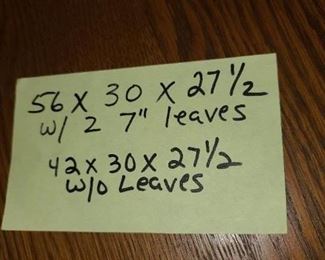 56 x 30 x 27 1/2
w/ 2 7" leaves
42 x 30 x 27 1/2
w/o Leaves